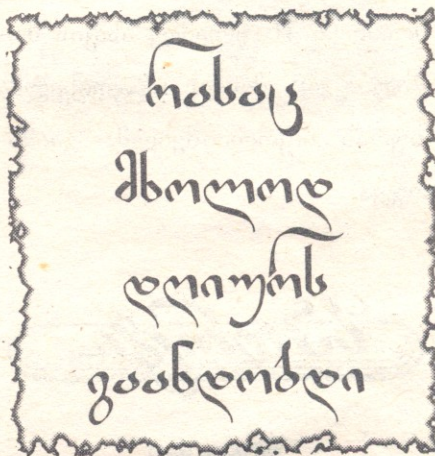 რასაც
მხოლოდ
დღიურს
გაანდობდი